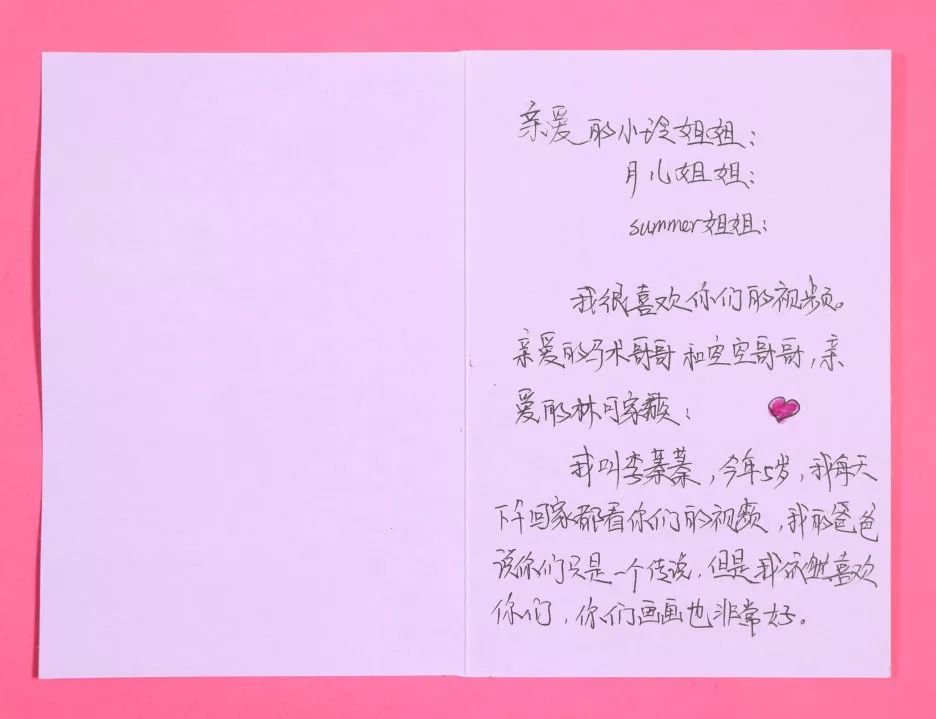 亲爱的小玲姐姐：
月儿姐姐：
summer姐姐：
我很喜欢你们的视频。
亲爱的马术哥哥和空空哥哥，亲
爱的林可家族：
我叫李蓁蓁，今年5岁，我每天
下午回家都看你们的视频，我的爸爸
说你们只是一个传说，但是我依然喜欢
你们，你们画画也非常好。